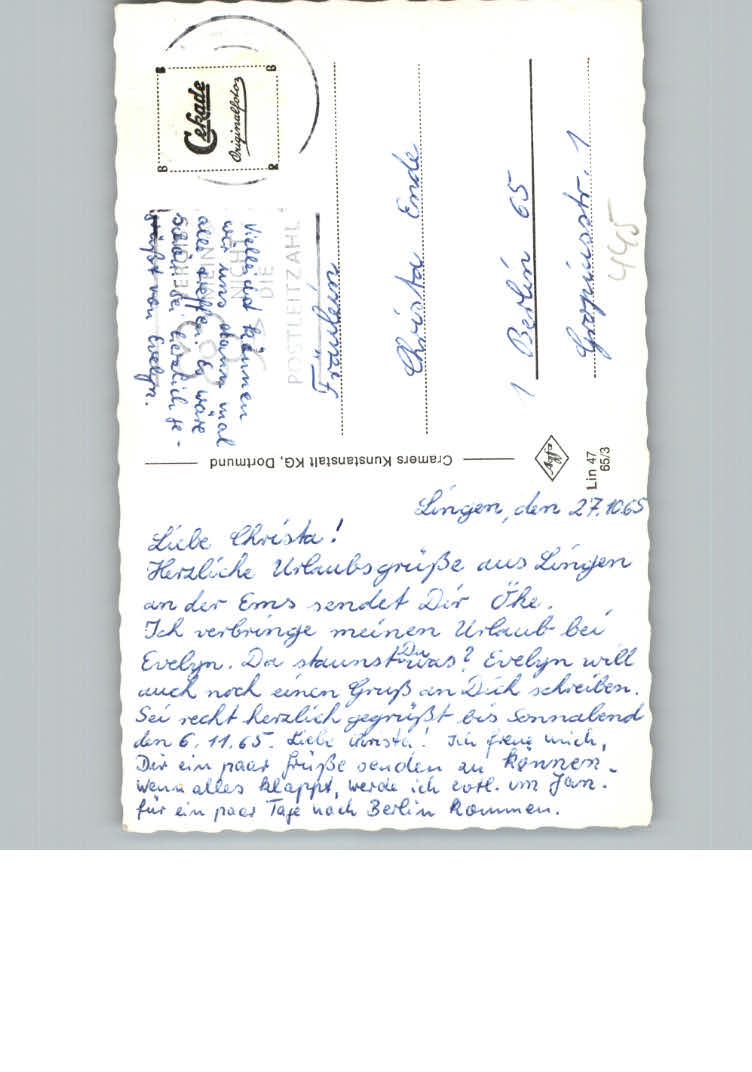 Lingen, den 27.10.65
Liebe Christa!
Herzliche Urlaubsgrüße aus Lingen
an der Ems sendet Dir Öhe.
Ich verbringe meinen Urlaub bei
Evelyn. Da staunst Du was? Evelyn will
auch noch einen Gruß an Dich schreiben.
Sei recht herzlich gegrüßt bis Sonnabend
den 6.11.65. Liebe Christa! Ich freue mich,
Dir ein paar Grüße senden zu können.
Wenn alles klappt, werde ich evtl. im Jan.
für ein paar Tage nach Berlin kommen.
Vielleicht können
wir uns dann mal
alle treffen. Es wäre
schön. Sei herzlich ge-
grüßt von Evelyn.
Cekade
Originalfoto
B
B
B
R
NICHT
DIE
POSTLEITZAHL
Fräulein
Christa Ende
1 Berlin 65
Gropiusstr. 1
445
Cramers Kunstanstalt KG, Dortmund
Agfa
Lin 47
65/3